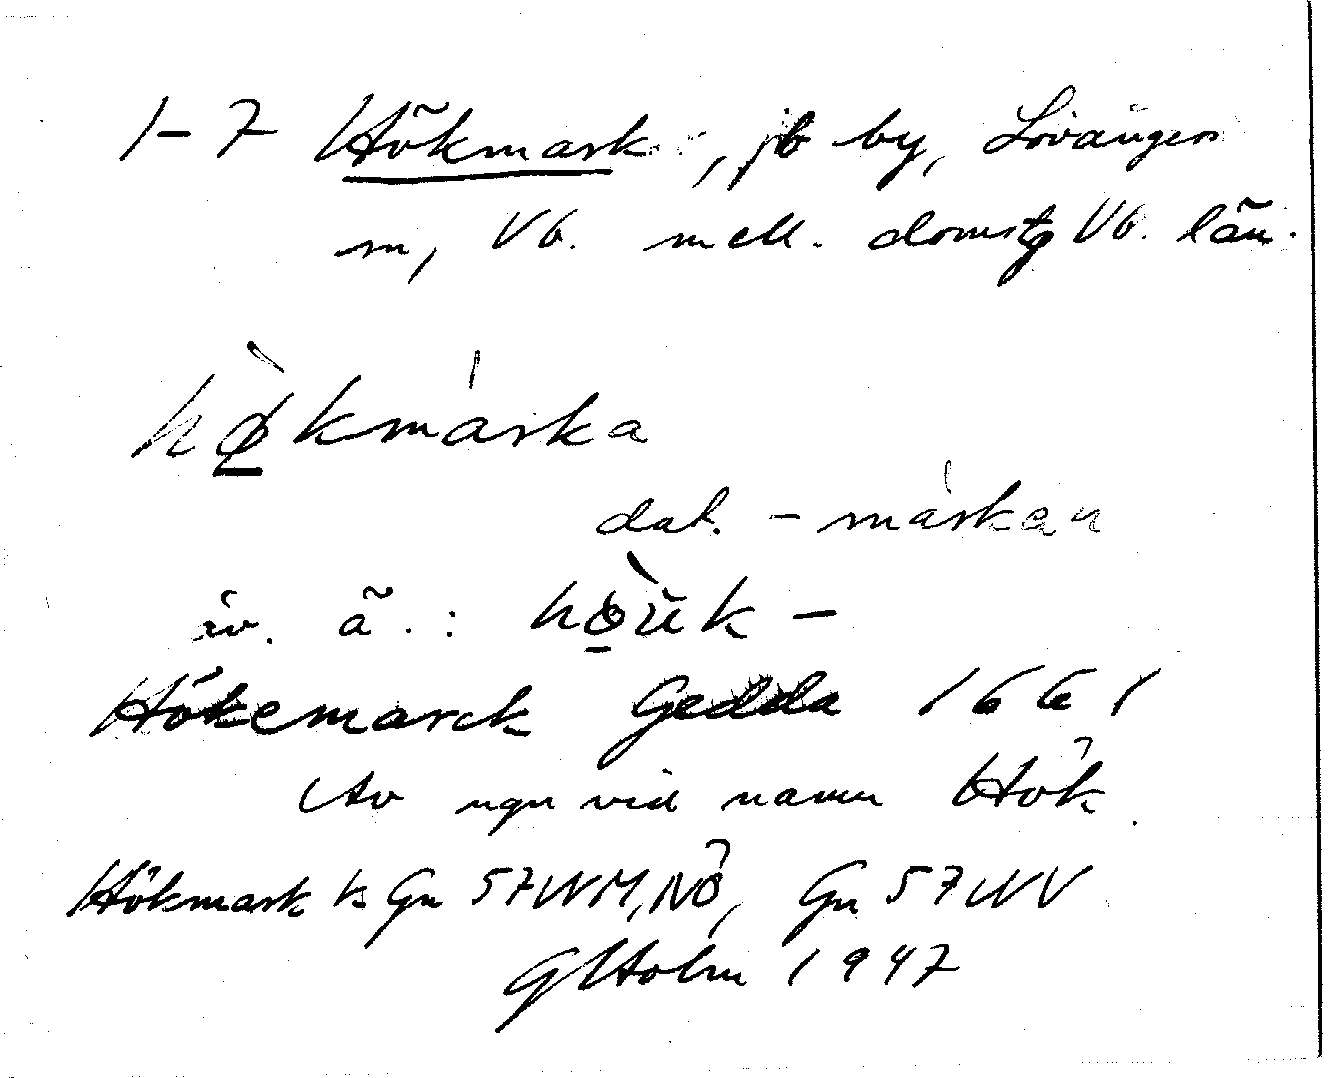 1-7 Hökmark, jb by, Lövångers
sn, Vb. mell. doms. Vb. län.
hø̀kmárka
dat. -márkan
äv. ä.: hòuk-
Hökemarck Gedda 1661
Av ngn vid namn Hök.
Hökmark k Gn 57NM, NÖ, Gn 57NV
GHolm 1947